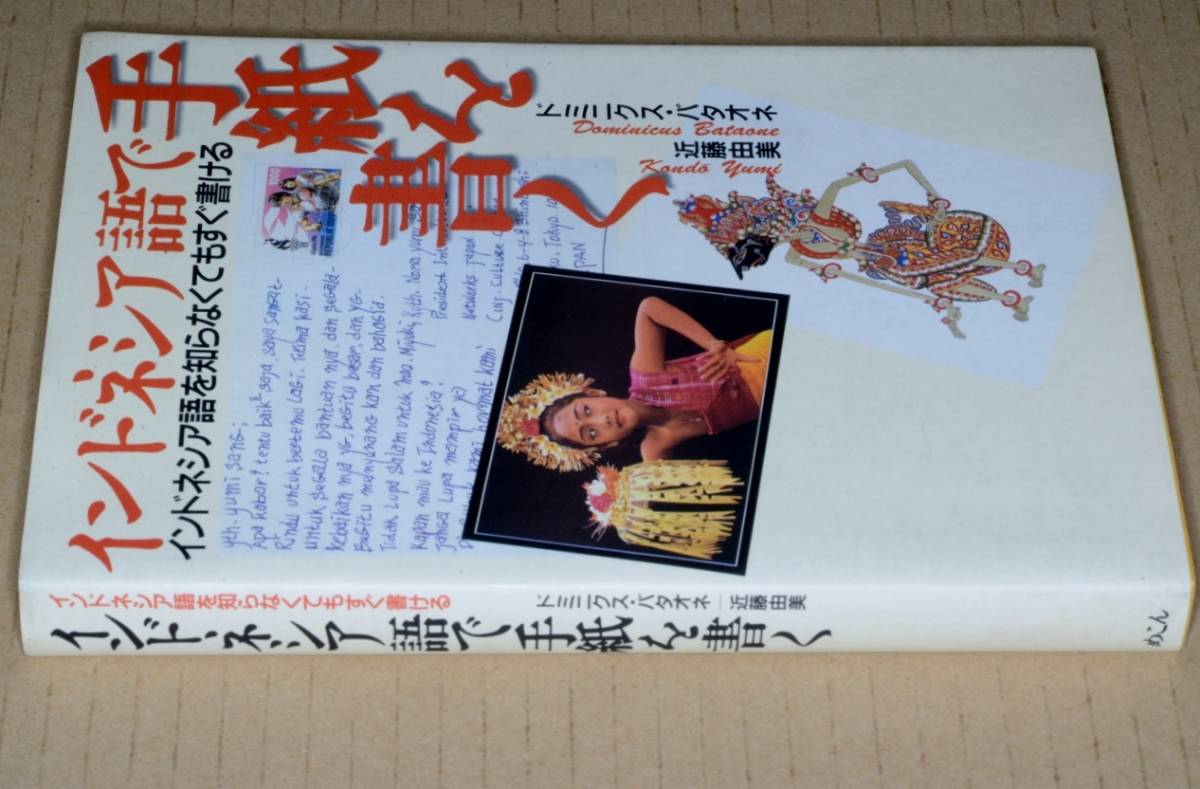 インドネシア語で
手紙を
書く
インドネシア語を知らなくてもすぐ書ける
ドミニクス・バタオネ
Dominicus Bataone
近藤由美
Kondō Yumi
yth. yumi sang;
Apa kabar? tentu baik² saja, saya sangat
Rindu untuk bertemu lagi. Terima kasi-
untuk segala bantuan nya, dan segala-
kebaikan nya yg, begitu besar, dan yg-
begitu menyanang kan dan bahagia.
Tidak Lupa salam untuk mas. Miyuki
kapan mau ke Indonesia?
Jangal Lupa mampir ya
hormat kami
President
Networks Japan
6-4-8
Tokyo.
インドネシア語を知らなくてもすぐ書ける
インドネシア語で手紙を書く
ドミニクス・バタオネ―近藤由美
めこん